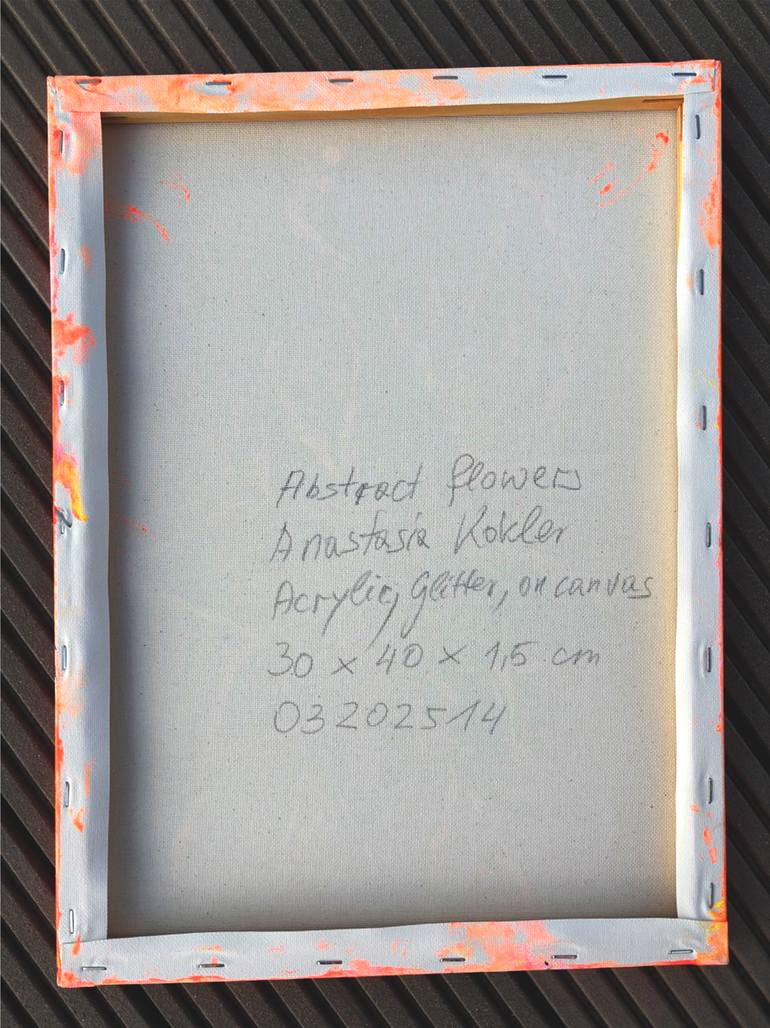 Abstract flowers
Anastasia Kokler
Acrylic, Glitter, on canvas
30 x 40 x 1,5 cm
03202514